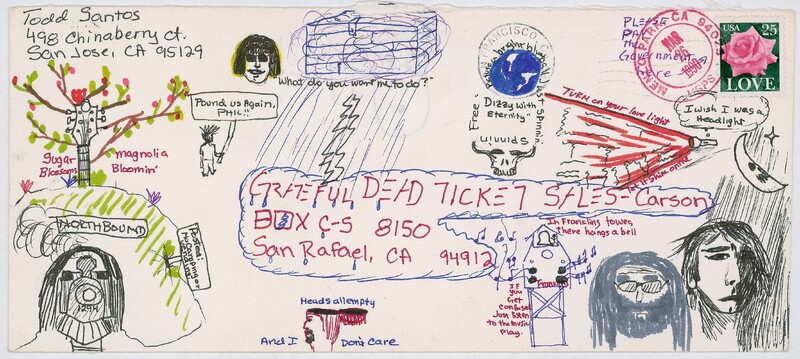 Todd Santos
498 Chinaberry Ct.
San Jose, CA 95129
"What do you want me to do?"
Pound us Again,
PHIL!!
Sugar
Blossoms
magnolia
Bloomin'
NORTHBOUND
Dizzy with
Eternity"
Free
PLEASE
the
Government
Here
MENLO PARK, CA 94025
MAR
26
USA 25
LOVE
TURN on your love light
Let it shine on me
I wish I was a
Headlight
GRATEFUL DEAD TICKET SALES-Carson
BOX C-S 8150
San Rafael, CA 94912
In Franklins tower,
there hangs a bell
IF
you
Get
confused
Just listen
to the music
Play.
Heads all empty
And I Don't Care